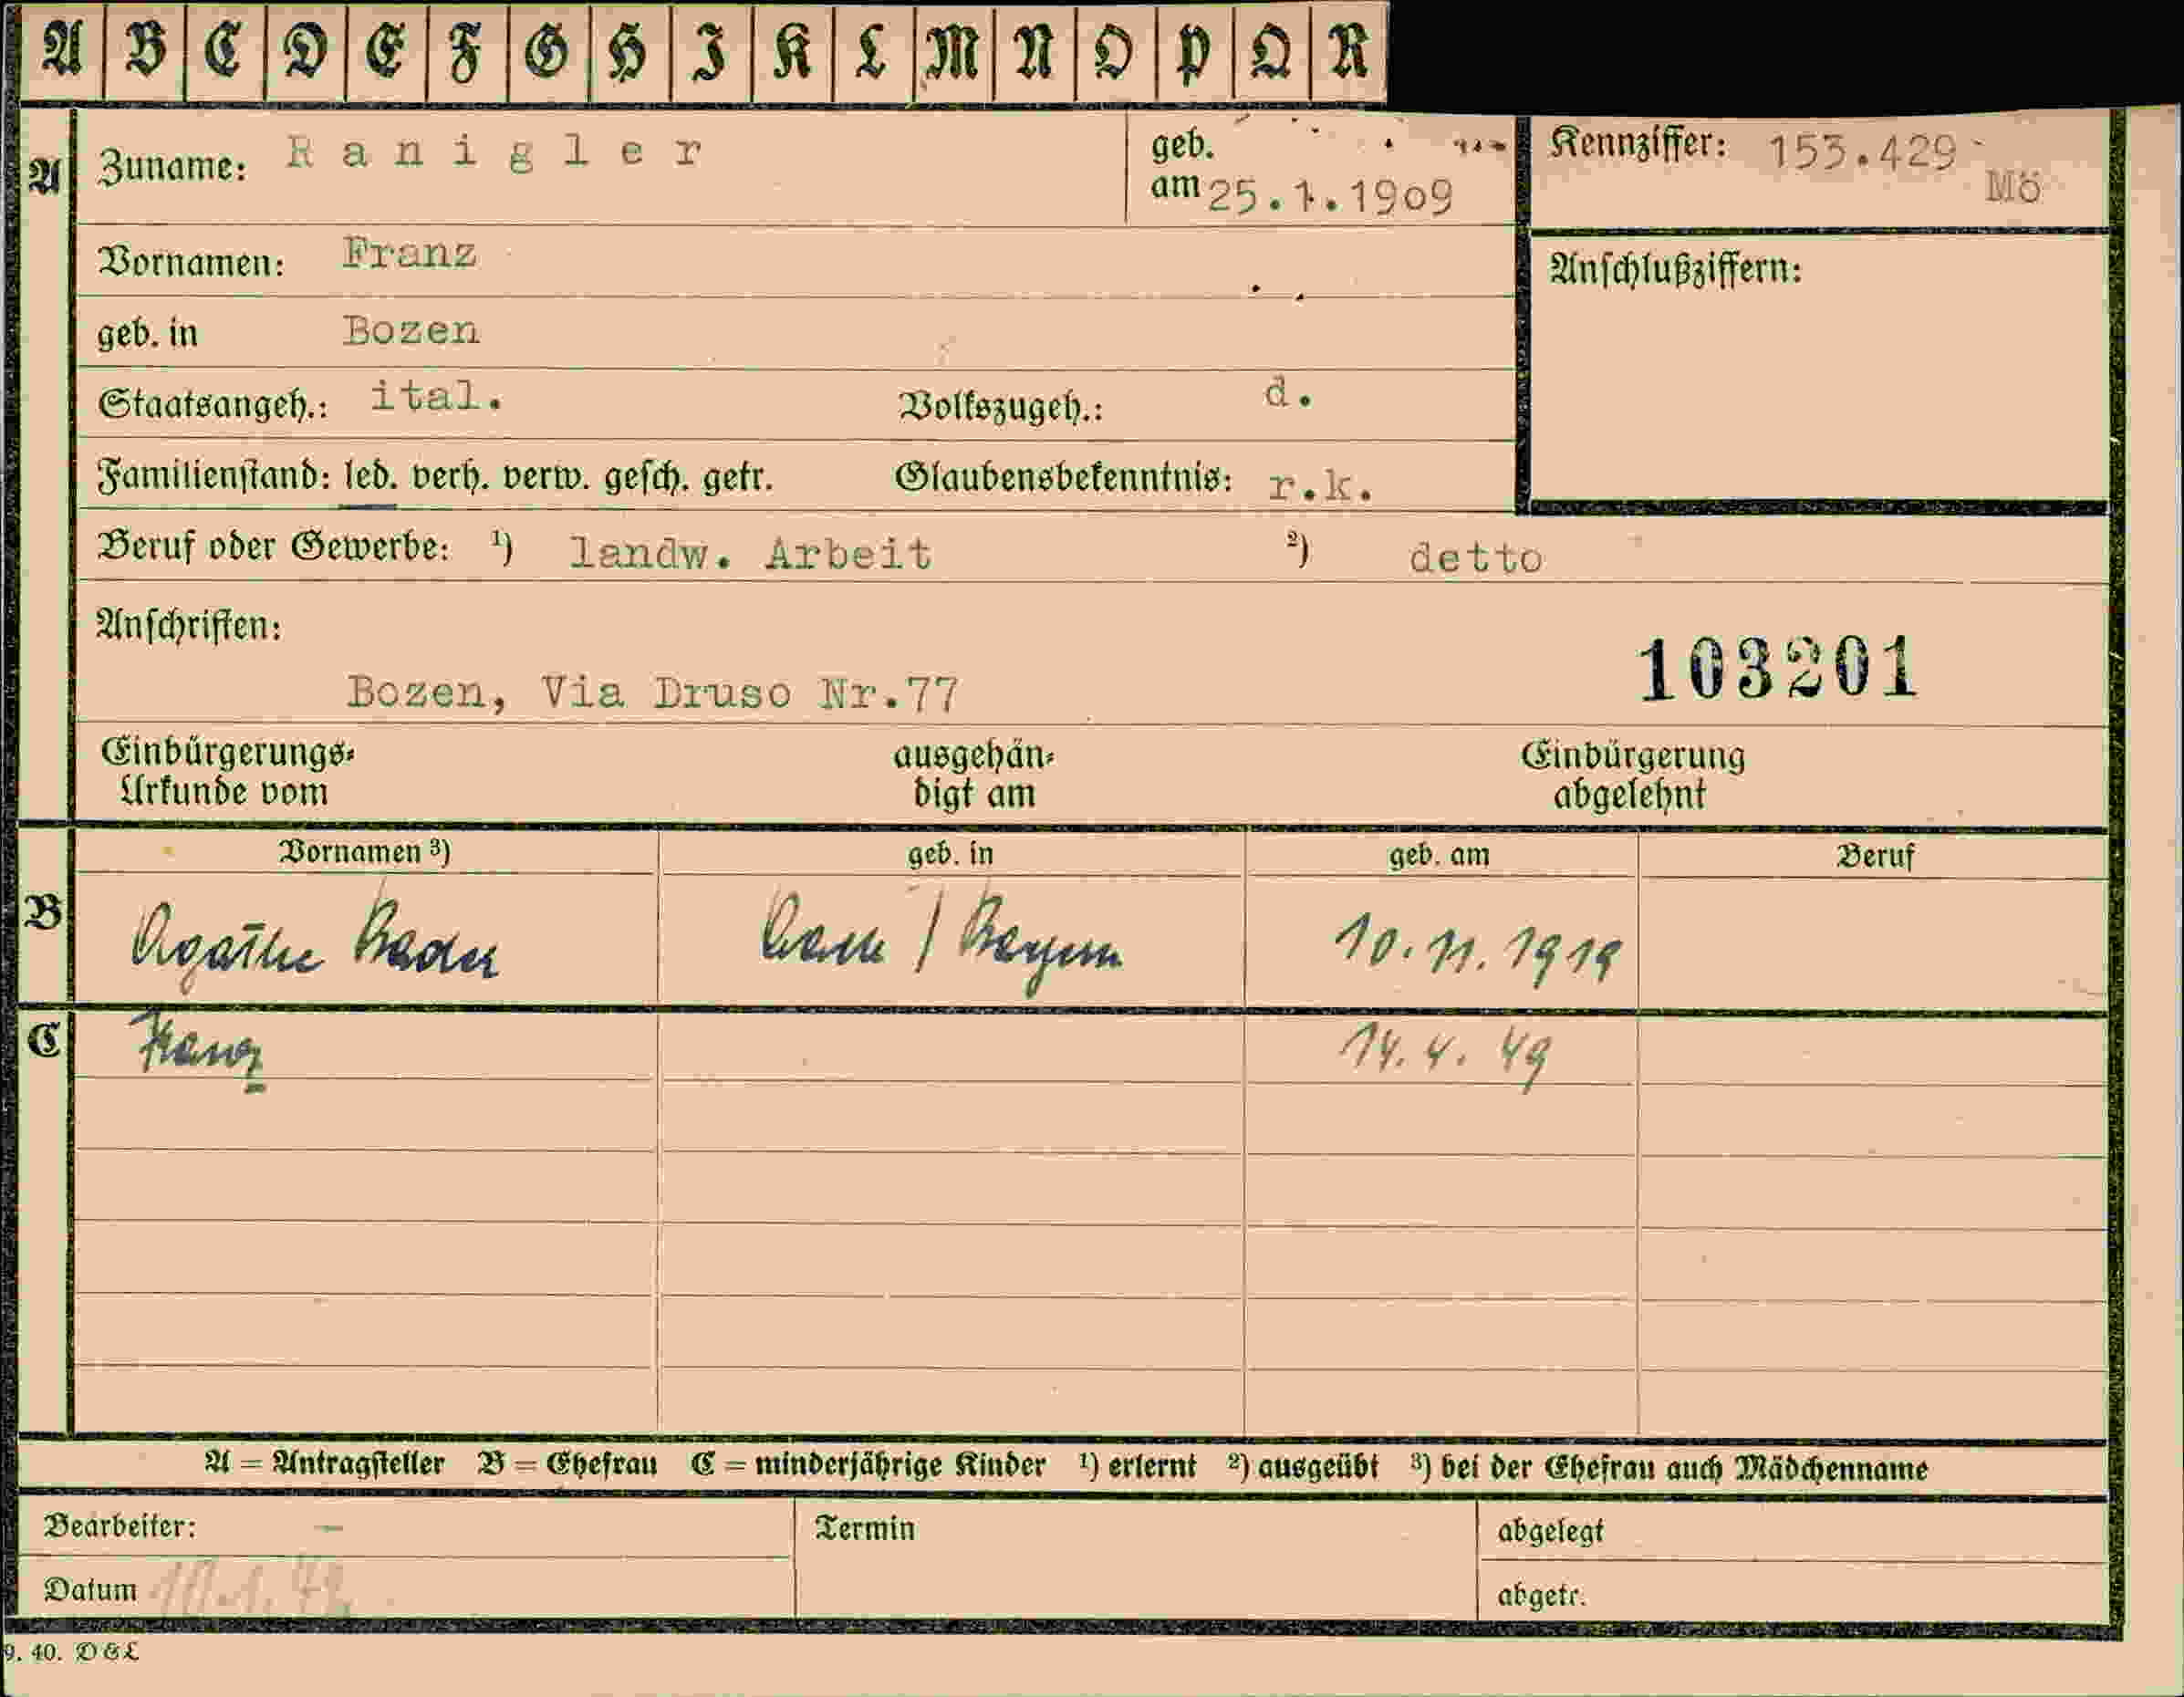 A B C D E F G H I K L M N O P Q R
A Zuname: Ranigler geb. am 25.1.1909 Kennziffer: 153.429 Mö
Vornamen: Franz Anschlußziffern:
geb. in Bozen
Staatsangeh.: ital. Volkszugeh.: d.
Familienstand: led. verh. verw. gesch. getr. Glaubensbekenntnis: r.k.
Beruf oder Gewerbe: ¹) landw. Arbeit ²) detto
Anschriften:
103201
Bozen, Via Druso Nr.77
Einbürgerungs- ausgehän- Einbürgerung
Urkunde vom digt am abgelehnt
Vornamen ³) geb. in geb. am Beruf
B Agathe Bader / Bayern 10.11.1919
C Franz 14.4.49
A = Antragsteller B = Ehefrau C = minderjährige Kinder ¹) erlernt ²) ausgeübt ³) bei der Ehefrau auch Mädchenname
Bearbeiter: Termin abgelegt
Datum abgetr.
9. 40. D&L